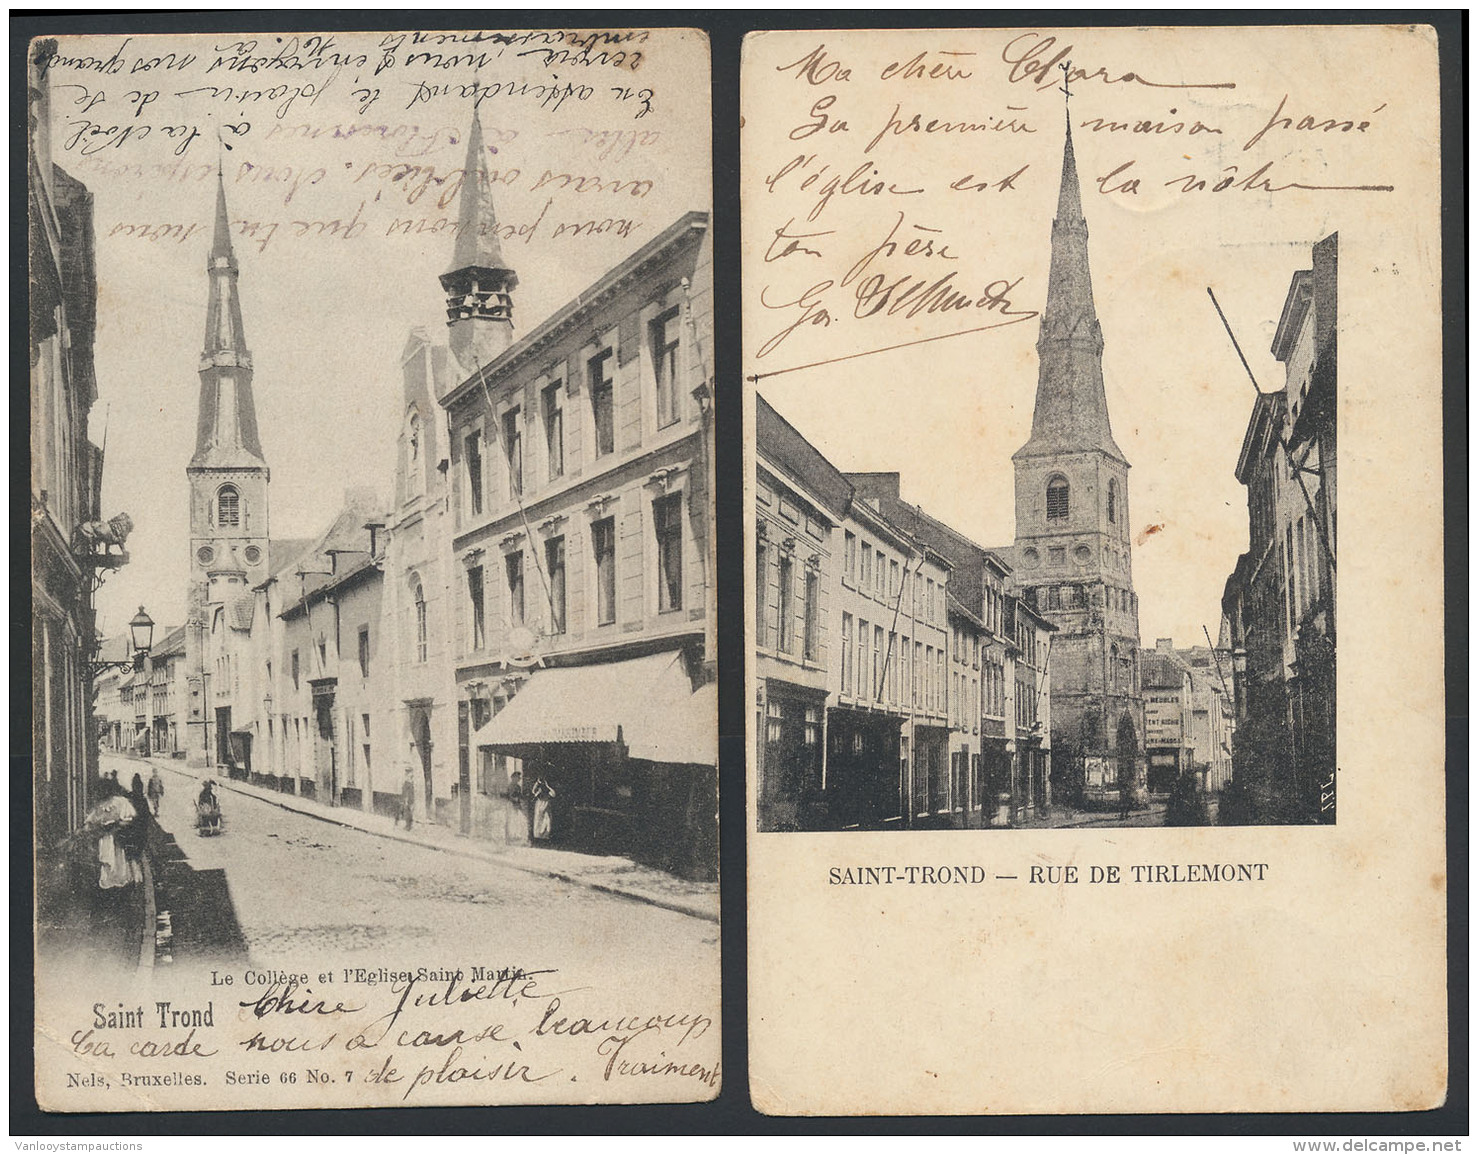 Le Collège et l'Eglise Saint Martin.
Saint Trond
Chère Juliette
Ta carde nous a causé beaucoup
de plaisir. Vraiment
Nels, Bruxelles. Serie 66 No. 7
nous pensions que tu nous
avais oubliées. Nous espérons
aller à
à la Noël
En attendant le plaisir de te
revoir, nous t'envoyons nos grands
embrassements
Ma chère Clara
La première maison passé
l'église est la nôtre
ton père
MEUBLES
SAINT-TROND — RUE DE TIRLEMONT
Vanlooystampauctions
www.delcampe.net